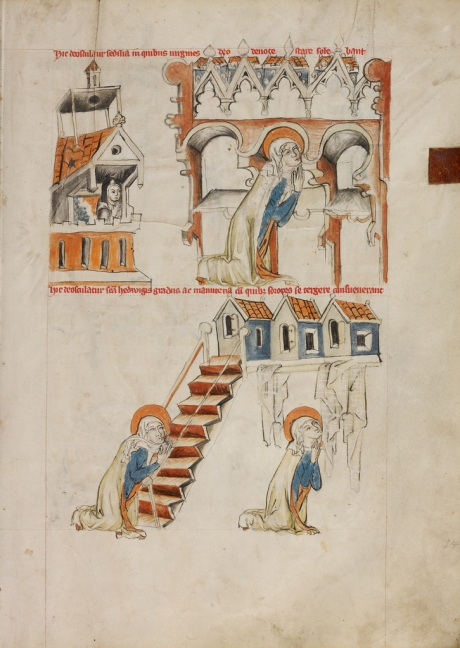 Hic deosculatur sedilia in quibus uirgines deo deuote stare solebant
hic deosculatur scā hedwigis gradus ac manuteria cū quibꝫ sorores se tergere consueuerant